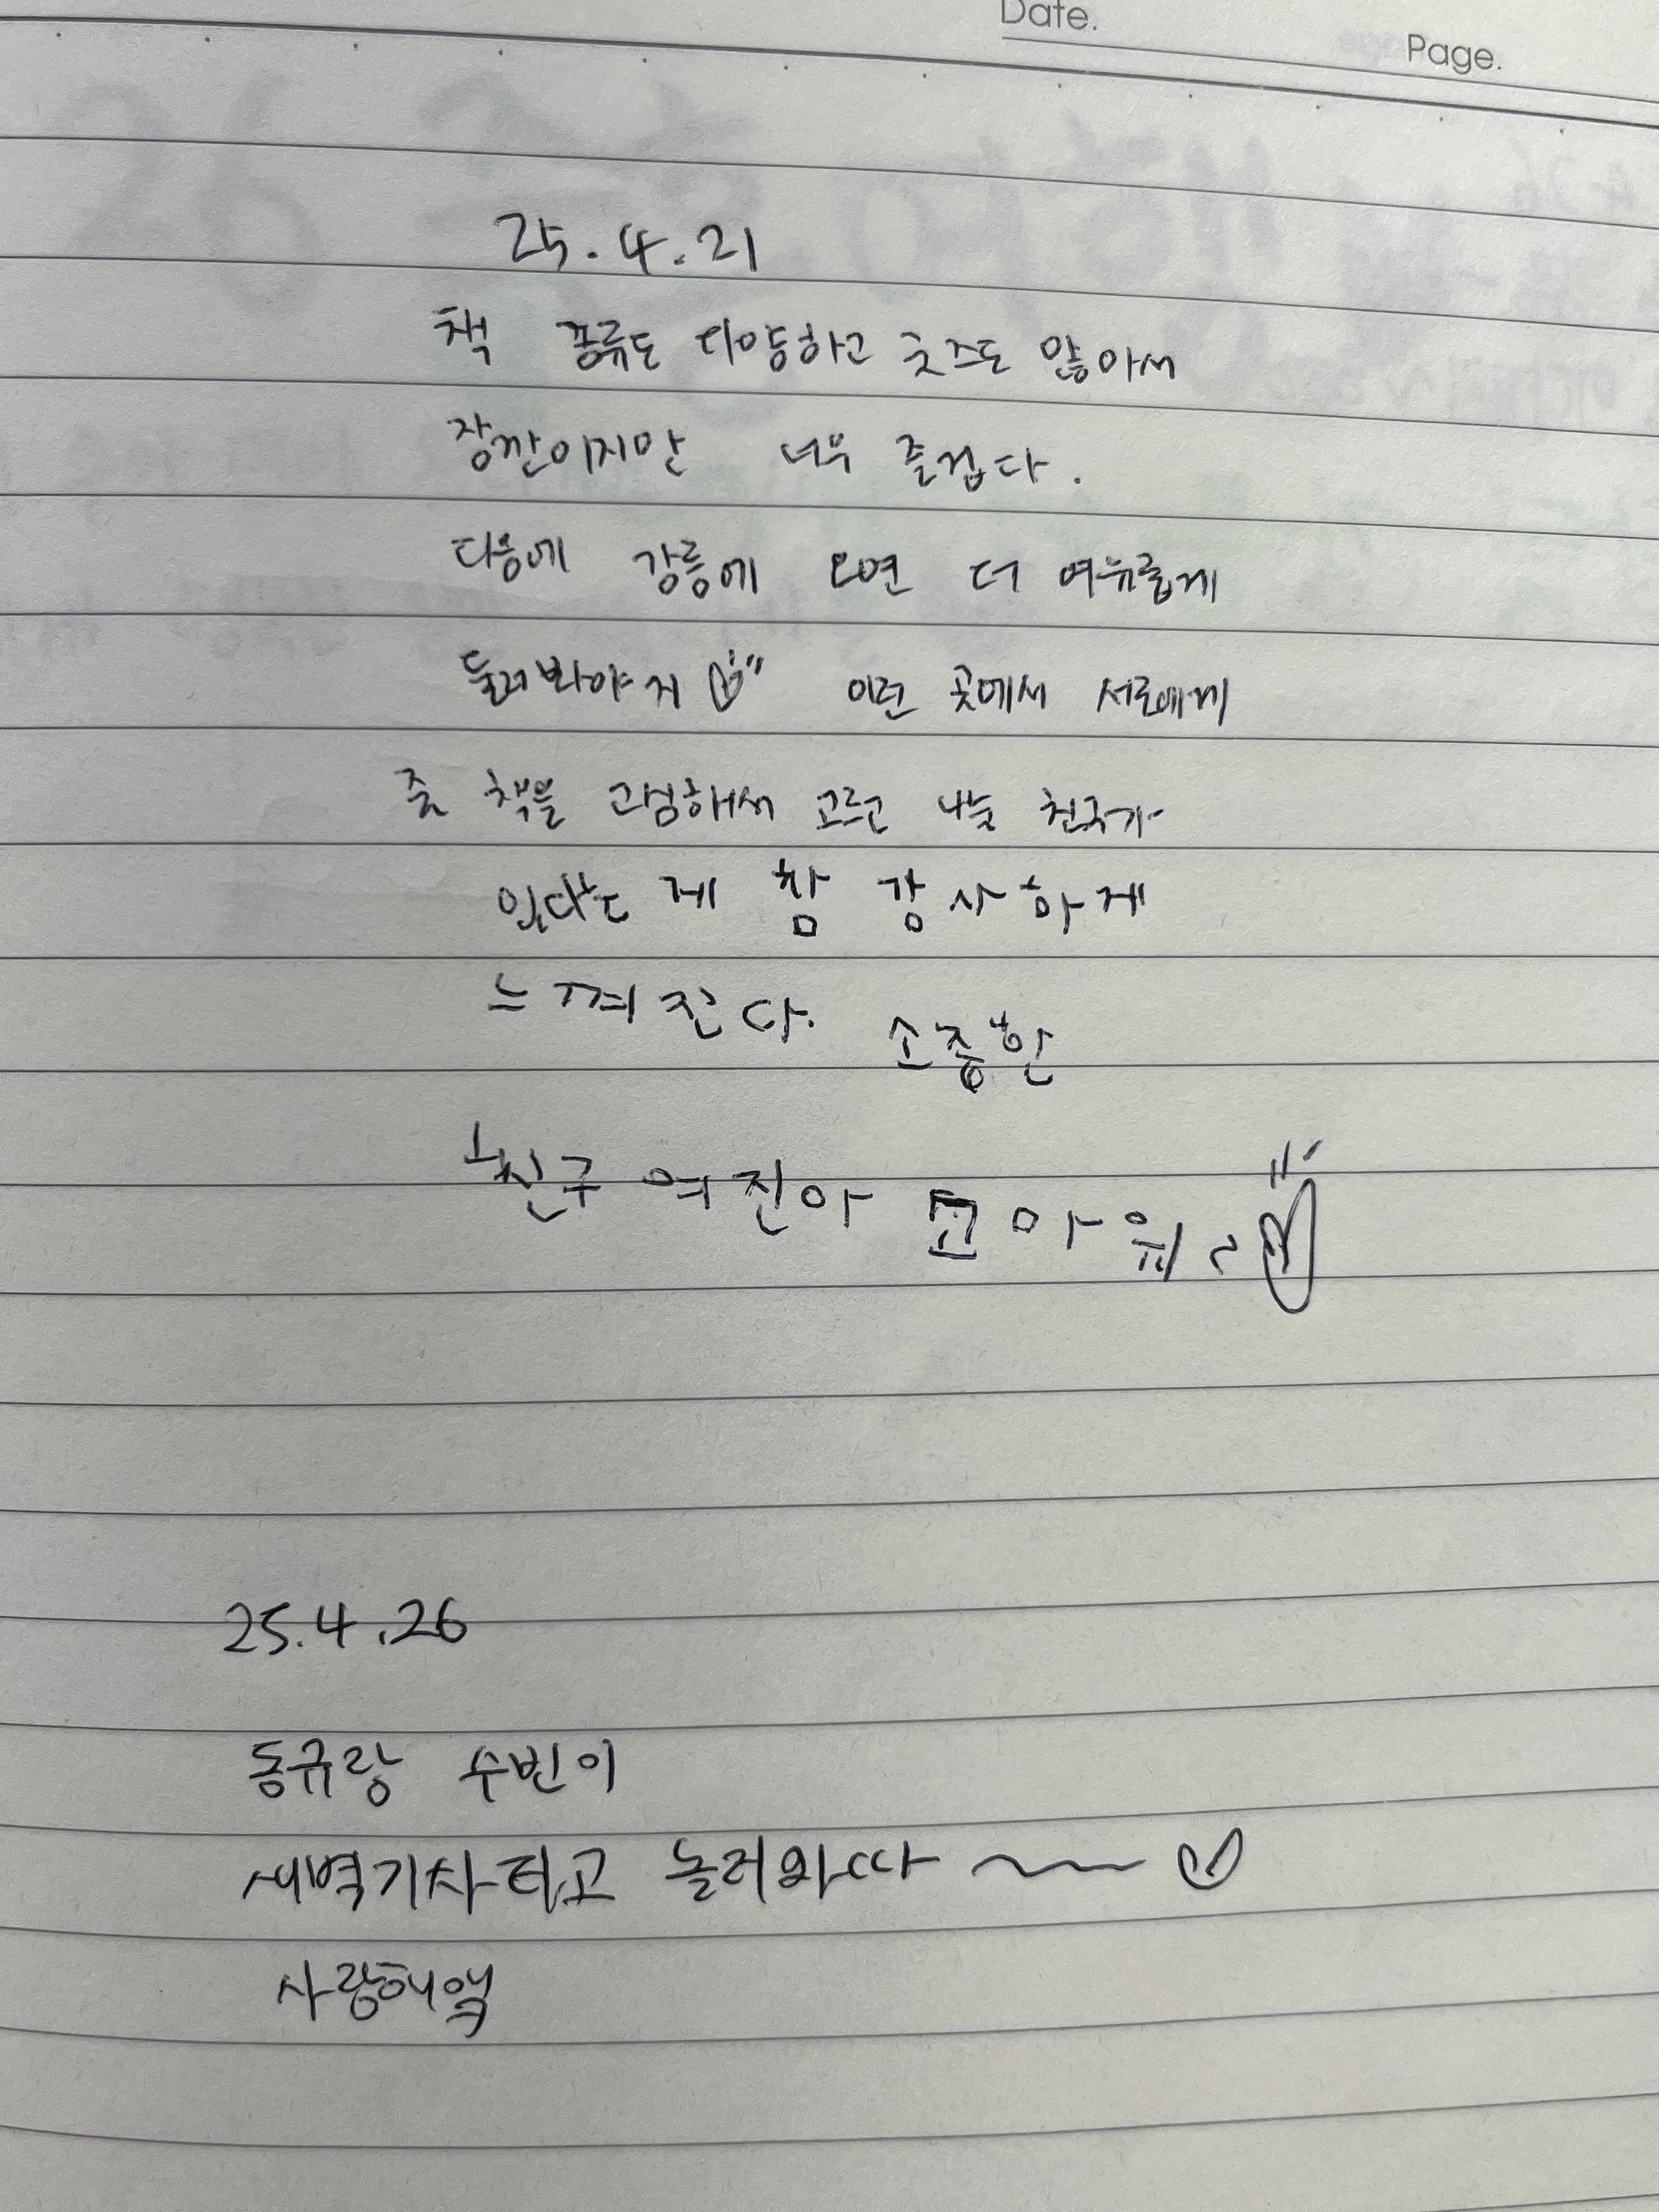 Date.
Page.
25.4.21
책 종류도 다양하고 굿즈도 많아서
잠깐이지만 너무 즐겁다.
다음에 강릉에 오면 더 여유롭게
둘러봐야지 이런 곳에서 서로에게
줄 책을 고심해서 고르고 나눌 친구가
있다는 게 참 감사하게
느껴진다. 소중한
친구 여진아 고마워~
25.4.26
동규랑 수빈이
새벽기차타고 놀러와따 ~
사랑해